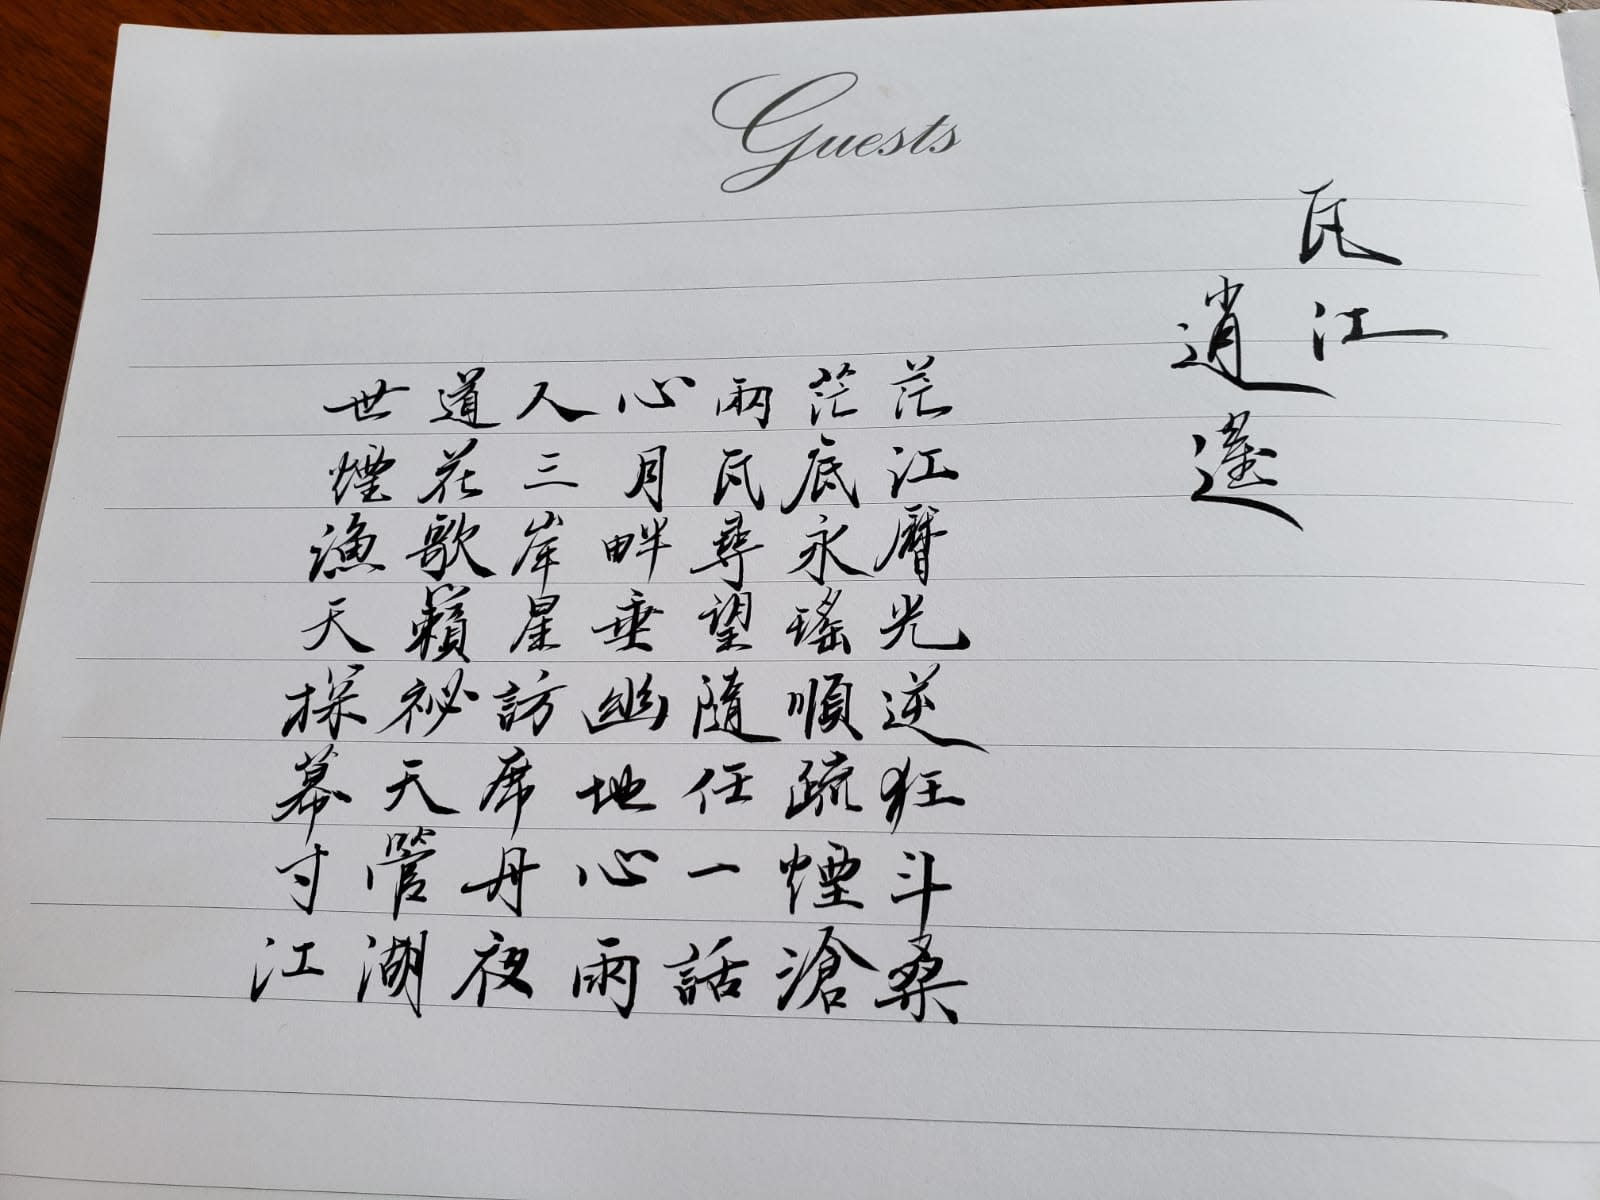 Guests
瓦江
逍遙
世道人心兩茫茫
煙花三月瓦底江
漁歌岸畔尋永曆
天籟星垂望瑤光
探祕訪幽隨順逆
幕天席地任疏狂
寸管丹心一煙斗
江湖夜雨話滄桑